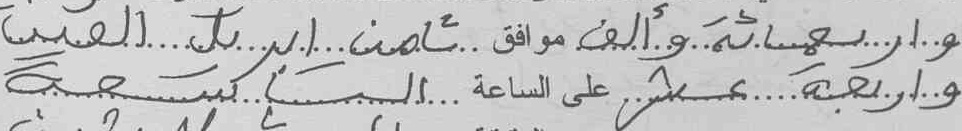 و اربعمائة وألف موافق ثامن ابريل الفين
و اربعة عشر على الساعة التاسعة